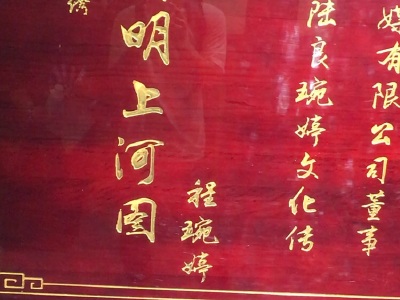 明上河图
程琬婷
陆良琬婷文化传
媒有限公司董事